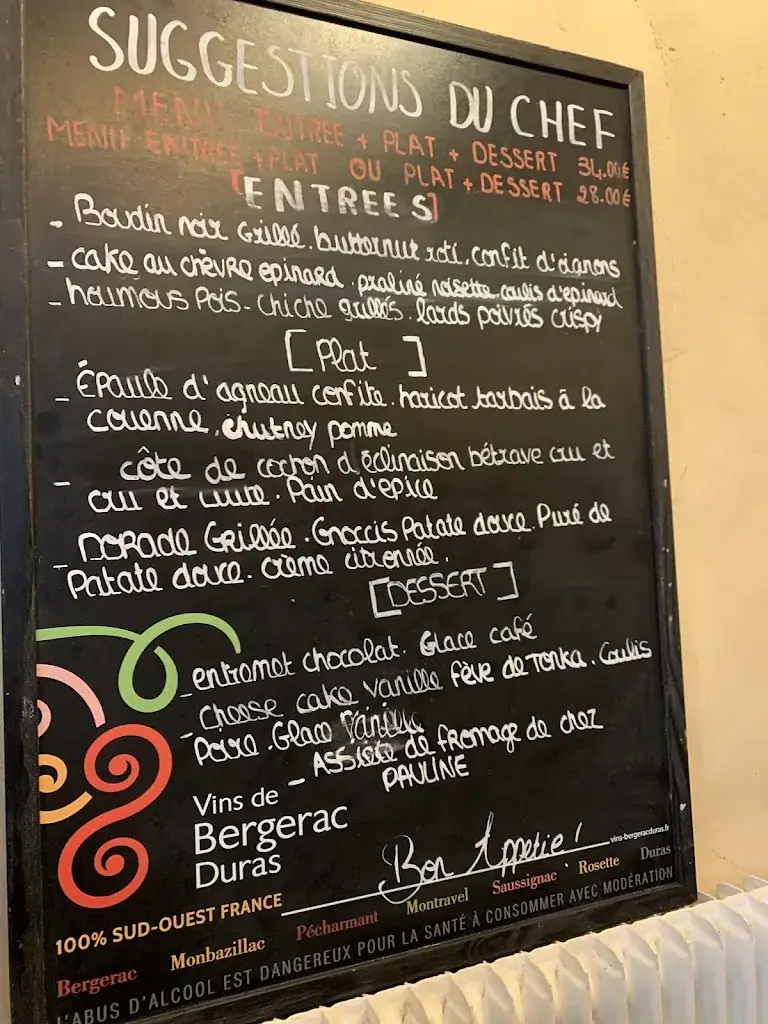 SUGGESTIONS DU CHEF
MENU ENTREE + PLAT + DESSERT 34.00€
MENU ENTREE + PLAT OU PLAT + DESSERT 28.00€
[ENTREES]
- Boudin noir Grillé. butternut roti. confit d'oignons
- cake au chèvre epinard. praliné noisette. coulis d'epinard
- houmous Pois-chiche grillés. lards poivrés crispy
[Plat]
- Épaule d'agneau confite. haricot tarbais à la
couenne. chutney pomme
- côte de cochon déclinaison bétrave cru et
cru et cuite. Pain d'epice
- DORADE Grillée. Gnoccis Patate douce. Puré de
Patate douce. crème citronnée.
[DESSERT]
- entremet chocolat. Glace café
- Cheese cake vanille fève de Tonka. Coulis
Poire. Glace Vanille
- ASSiéte de fromage de chez
PAULINE
Vins de
Bergerac
Duras
Bon Appetie!
vins-bergeracduras.fr
100% SUD-OUEST FRANCE
Bergerac Monbazillac Pécharmant Montravel Saussignac Rosette Duras
L'ABUS D'ALCOOL EST DANGEREUX POUR LA SANTÉ À CONSOMMER AVEC MODÉRATION